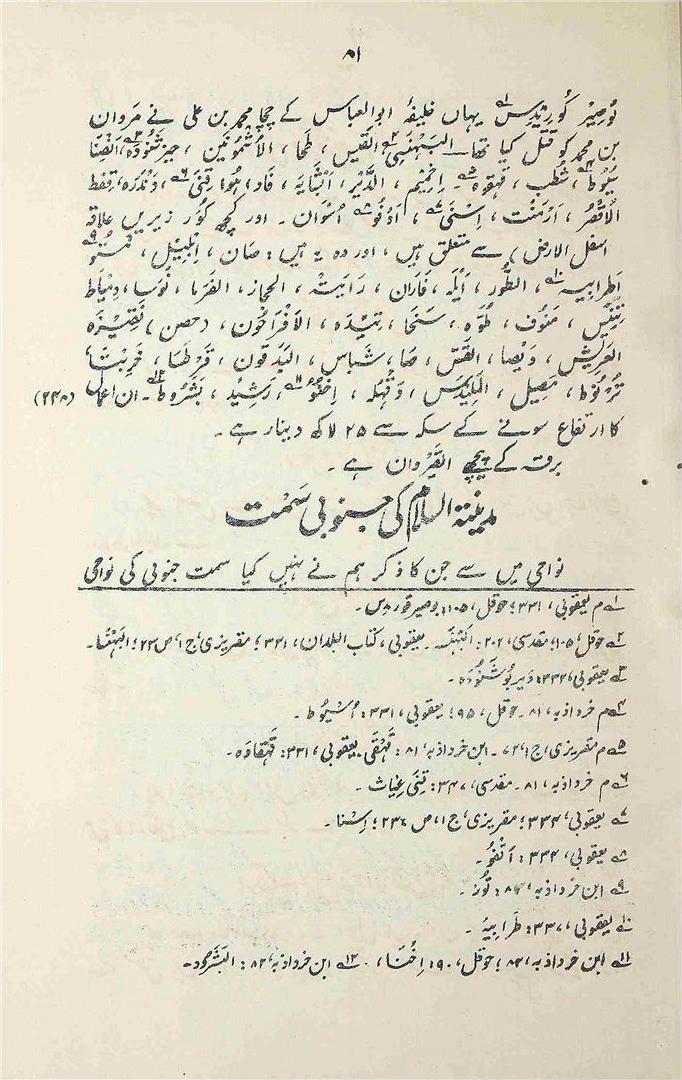 ۸۱
بُوصِیْر کُورِیْدِس۱ یہاں خلیفۂ ابوالعباس کے چچا محمد بن علی نے مروان
بن محمد کو قتل کیا تھا۔ البَہْنَسی۲، القَیْس، طَحا، الاُشْمُونَین، حیز شَنُودہ۳، اَنْصِنا
سُیُوط۴، شُطب، قَہقوہ۵۔ اِخمِیْم، الدَّیْر، اَبْشایَہ، فاو، ہُو، قِنیٰ۶، دَنْدَرَہ، قِفط
الاُقْصُر، اَرْمَنْت، اِسْنیٰ۷، اُدْفُو۸ اُسْوان۔ اور کچھ کُوَر زیریں علاقہ
اسفل الارض) سے متعلق ہیں، اور وہ یہ ہیں: صان، اِبْلِیْل، تمتو۹
اَطرابیہ۱۰، الطُّور، اَیْلَہ، فاران، رَایَتْہ، الحجاز، الفَرَما، نُوسا، دِمْیاط
تِنِّیْس، مَنُوف، طُوَّہ، سَنخا، تِیْدَہ، الاَفْراحُون، (حصن) نَقِیْزَہ
العَرِیْش، دَیْصا، القَسّ، صَا، شَباس، البَذَقون، قَرْطَسا، خَرِبْتا
تَرْنُوط، مَصِیل، المَلِیْدِس، دَقَہْلَہ، اِخْنُو۱۱، رَشِیْد، بَشَرُوط۱۲۔ ان اعمال (۲۴۸)
کا ارتفاع سونے کے سکہ سے ۲۵ لاکھ دینار ہے۔
برقہ کے پیچھے القَیْرَوان ہے۔
مدینۃ السلام کی جنوبی سَمْت
نواحی میں سے جن کا ذکر ہم نے نہیں کیا سمت جنوبی کی نواحی
۱ م یعقوبی، ۳۳۱؛ حوقل، ۱۰۵: بوصیر قوریدس۔
۲ حوقل، ۱۰۵؛ مقدسی، ۲۰۲: البَہْنَسہ۔ یعقوبی، کتاب البلدان، ۳۳۱؛ مقریزی، ج۱، ص ۲۳؛ البَہْنَسا۔
۳ یعقوبی، ۳۳۲: دَیر بُوشَنُودَہ۔
۴ م خرداذبہ، ۸۱۔ حوقل، ۹۵؛ یعقوبی، ۳۳۱: اُسْیُوط۔
۵ م مقریزی، ج۱، ۷۲۔ ابن خرداذبہ، ۸۱: قَہْقیٰ۔ یعقوبی، ۳۳۱: قَہْقَاوَہ۔
۶ م خرداذبہ، ۸۱۔ مقدسی، ۳۴۷: قِنیٰ غیاث۔
۷ یعقوبی، ۳۳۴؛ مقریزی، ج۱، ص ۲۳۶؛ اِسْنا۔
۸ یعقوبی، ۳۳۴: اَتْفُو۔
۹ ابن خرداذبہ، ۸۲: تُوز۔
۱۰ یعقوبی، ۳۳۷: طَرابِیہ۔
۱۱ ابن خرداذبہ، ۸۲؛ حوقل، ۹۰: اِخْنَا، ۱۲ ابن خرداذبہ، ۸۲: البَشَرُود۔